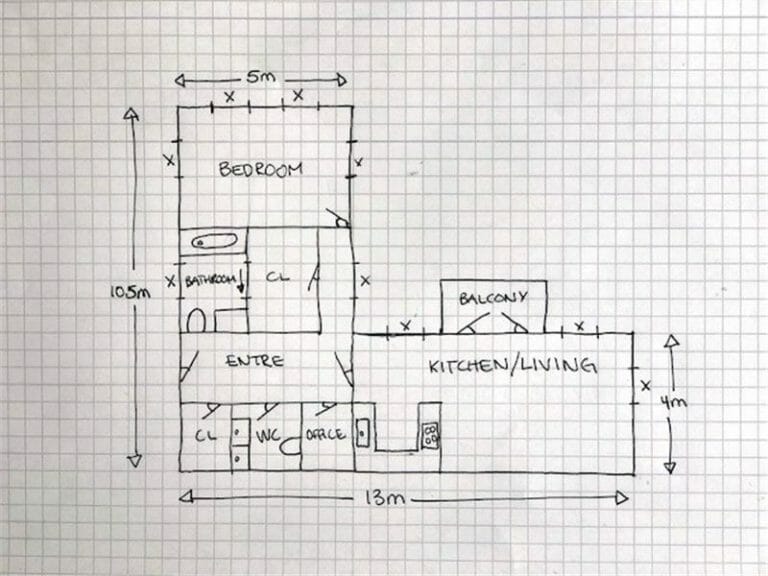 5m
X X
X BEDROOM X
X BATHROOM CL X
10.5m
BALCONY
X X
ENTRE KITCHEN/LIVING
X
4m
CL WC OFFICE
13m